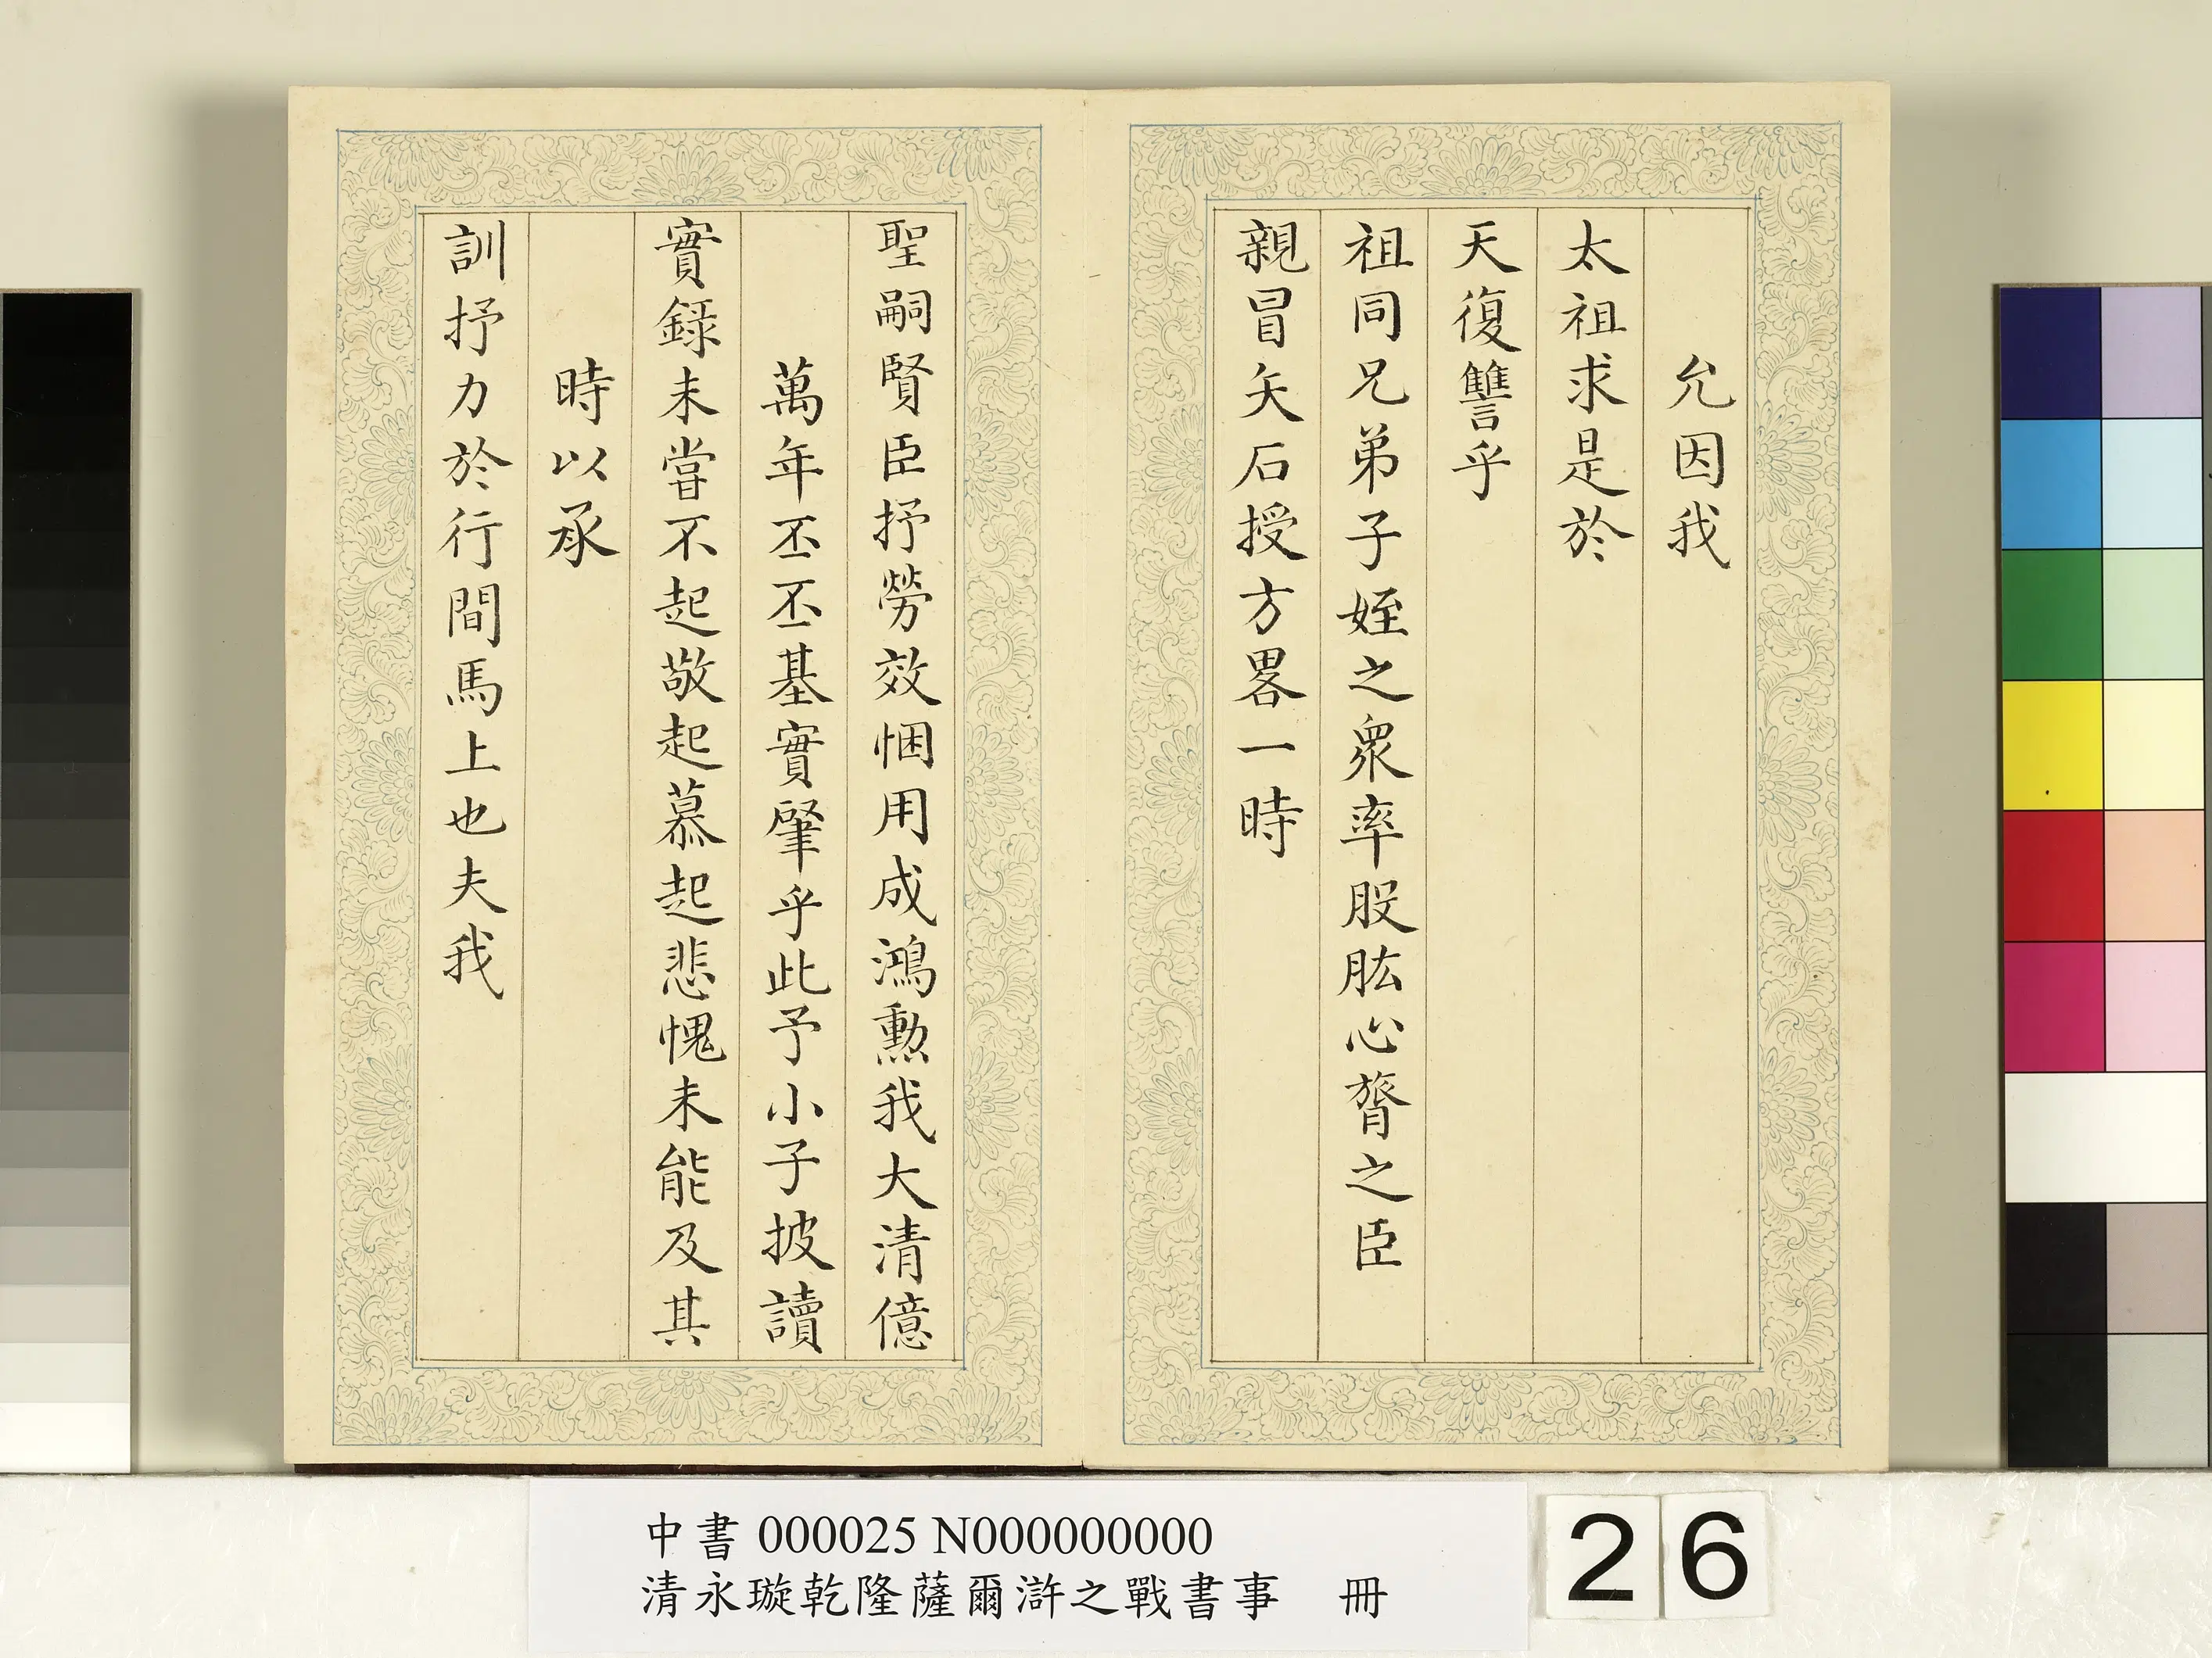 允因我
太祖求是於
天復讐乎
祖同兄弟子姪之衆率股肱心膂之臣
親冒矢石授方畧一時
聖嗣賢臣抒勞效悃用成鴻勲我大清億
萬年丕丕基實肇乎此予小子披讀
實錄未嘗不起敬起慕起悲愧未能及其
時以承
訓抒力於行間馬上也夫我
中書 000025 N000000000
清永璇乾隆薩爾滸之戰書事 冊
26